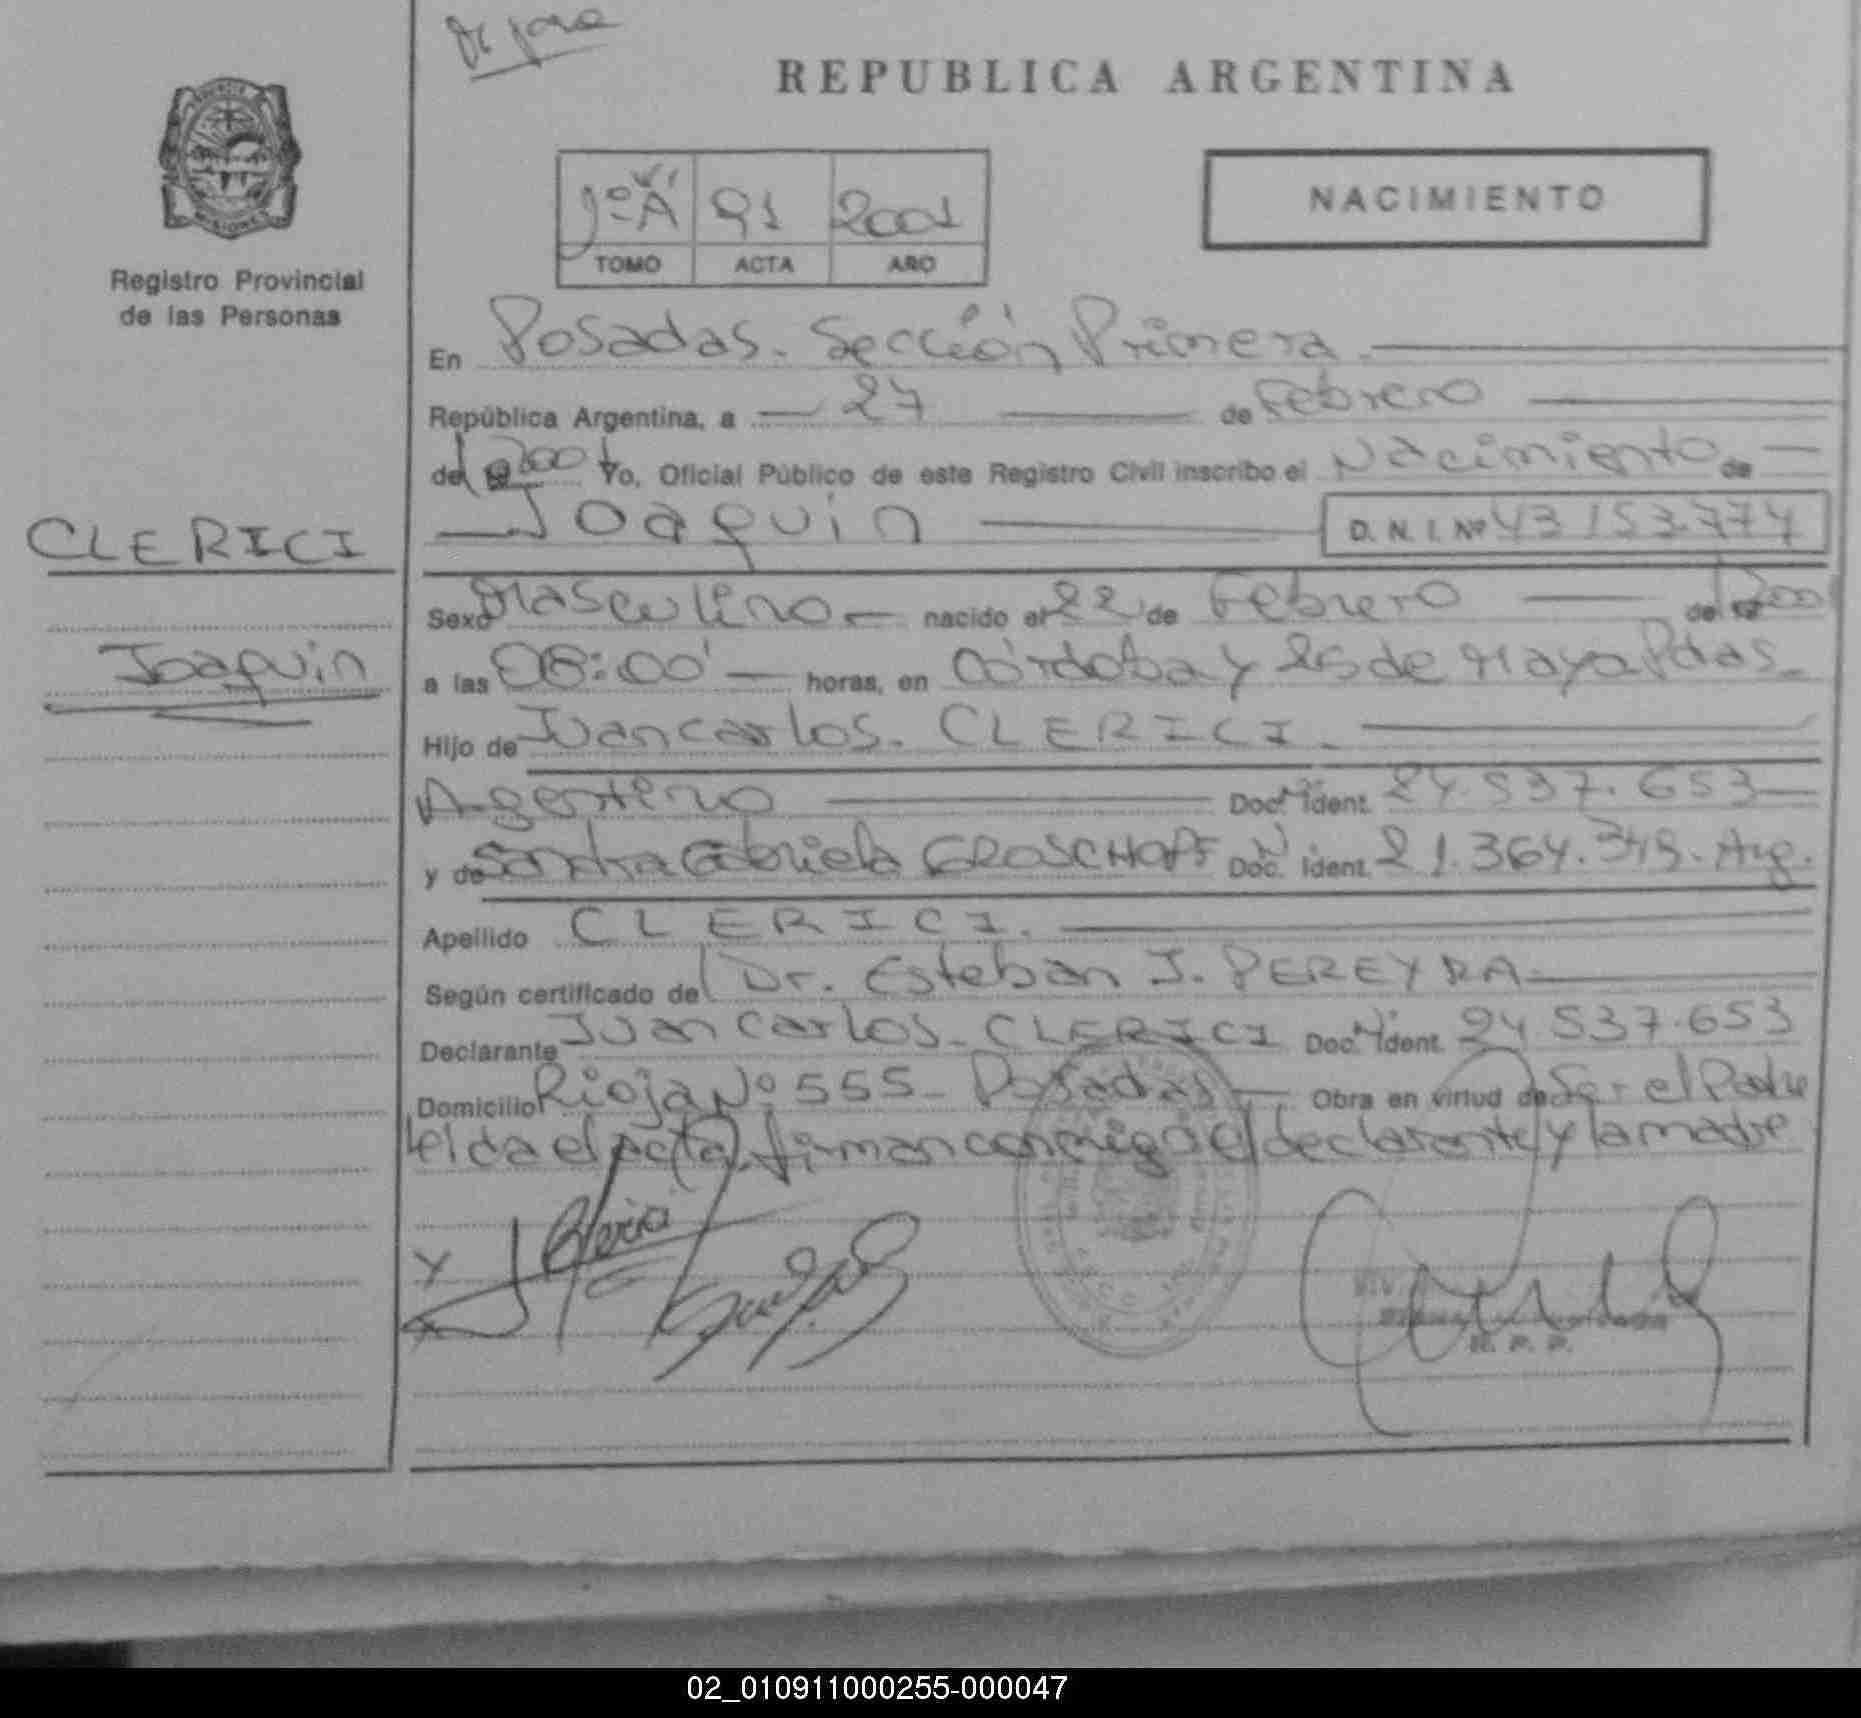 REPUBLICA ARGENTINA
1º A 91 2001
TOMO ACTA AÑO
NACIMIENTO
Registro Provincial
de las Personas
En Posadas. Sección Primera.
República Argentina, a 27 de Febrero
del 2001 Yo, Oficial Público de este Registro Civil inscribo el Nacimiento de
Joaquin D. N. I. Nº 43153.774
CLERICI
Joaquin
Sexo Masculino nacido el 22 de Febrero del 2001
a las 08:00' horas, en Córdoba y 25 de Mayo Pdas.
Hijo de Juan Carlos. CLERICI.
Argentino Doc. Ident. 24.537.653
y de Sandra Gabriela GROSCHOPF Doc. Ident. 21.364.349. Arg.
Apellido CLERICI.
Según certificado del Dr. Esteban J. PEREYRA
Declarante Juan Carlos. CLERICI Doc. Ident. 24.537.653
Domicilio Rioja Nº 555. Posadas Obra en virtud de Ser el Padre
Leída el acta, firman conmigo el declarante y la madre
R. P. P.
02_010911000255-000047